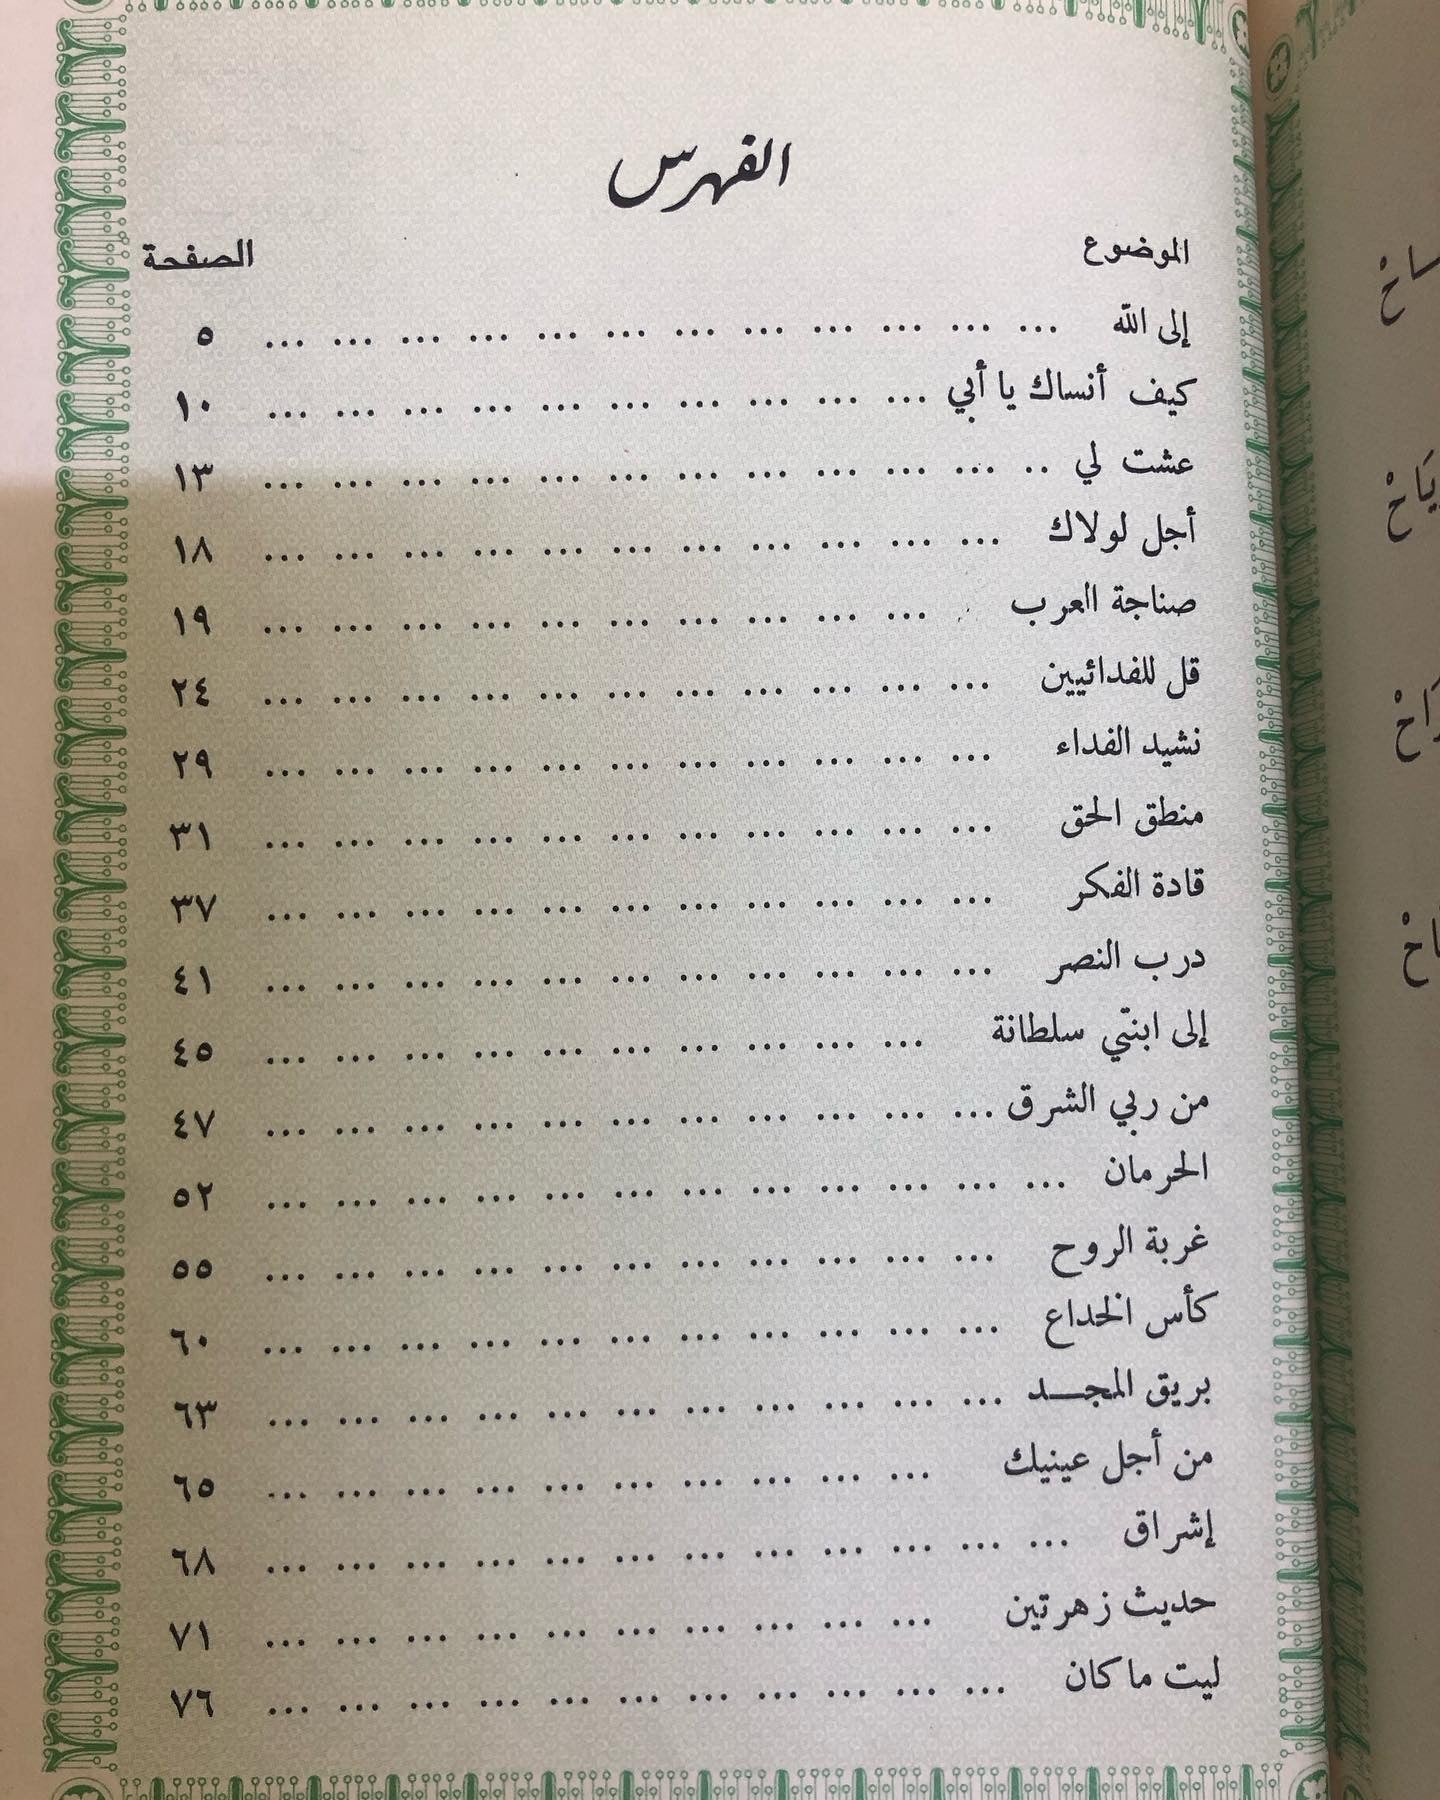 الفهرس
الموضوع الصفحة
إلى الله ... ... ... ... ... ... ... ... ... ... ... ... ٥
كيف أنساك يا أبي ... ... ... ... ... ... ... ... ... ... ١٠
عشت لي .. ... ... ... ... ... ... ... ... ... ... ... ١٣
أجل لولاك ... ... ... ... ... ... ... ... ... ... ... ١٨
صناجة العرب ... ... ... ... ... ... ... ... ... ... ١٩
قل للفدائيين ... ... ... ... ... ... ... ... ... ... ... ٢٤
نشيد الفداء ... ... ... ... ... ... ... ... ... ... ... ٢٩
منطق الحق ... ... ... ... ... ... ... ... ... ... ... ٣١
قادة الفكر ... ... ... ... ... ... ... ... ... ... ... ٣٧
درب النصر ... ... ... ... ... ... ... ... ... ... ... ٤١
إلى ابنتي سلطانة ... ... ... ... ... ... ... ... ... ... ٤٥
من ربي الشرق ... ... ... ... ... ... ... ... ... ... ... ٤٧
الحرمان ... ... ... ... ... ... ... ... ... ... ... ... ٥٢
غربة الروح ... ... ... ... ... ... ... ... ... ... ... ٥٥
كأس الخداع ... ... ... ... ... ... ... ... ... ... ... ٦٠
بريق المجــد ... ... ... ... ... ... ... ... ... ... ... ٦٣
من أجل عينيك ... ... ... ... ... ... ... ... ... ... ٦٥
إشراق ... ... ... ... ... ... ... ... ... ... ... ... ٦٨
حديث زهرتين ... ... ... ... ... ... ... ... ... ... ٧١
ليت ما كان ... ... ... ... ... ... ... ... ... ... ... ٧٦